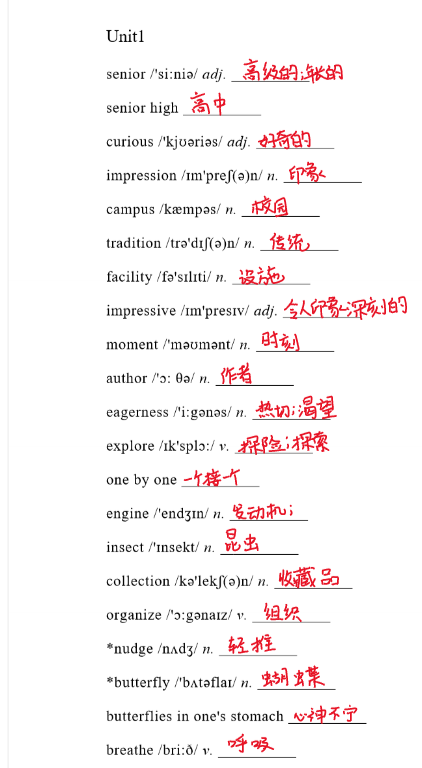 Unit1
senior /'si:niə/ adj. 高级的;年长的
senior high 高中
curious /'kjʊəriəs/ adj. 好奇的
impression /ɪm'preʃ(ə)n/ n. 印象
campus /kæmpəs/ n. 校园
tradition /trə'dɪʃ(ə)n/ n. 传统
facility /fə'sɪlɪti/ n. 设施
impressive /ɪm'presɪv/ adj. 令人印象深刻的
moment /'məʊmənt/ n. 时刻
author /'ɔ: θə/ n. 作者
eagerness /'i:gənəs/ n. 热切;渴望
explore /ɪk'splɔ:/ v. 探险;探索
one by one 一个接一个
engine /'endʒɪn/ n. 发动机;
insect /'ɪnsekt/ n. 昆虫
collection /kə'lekʃ(ə)n/ n. 收藏品
organize /'ɔ:gənaɪz/ v. 组织
*nudge /nʌdʒ/ n. 轻推
*butterfly /'bʌtəflaɪ/ n. 蝴蝶
butterflies in one's stomach 心神不宁
breathe /bri:ð/ v. 呼吸